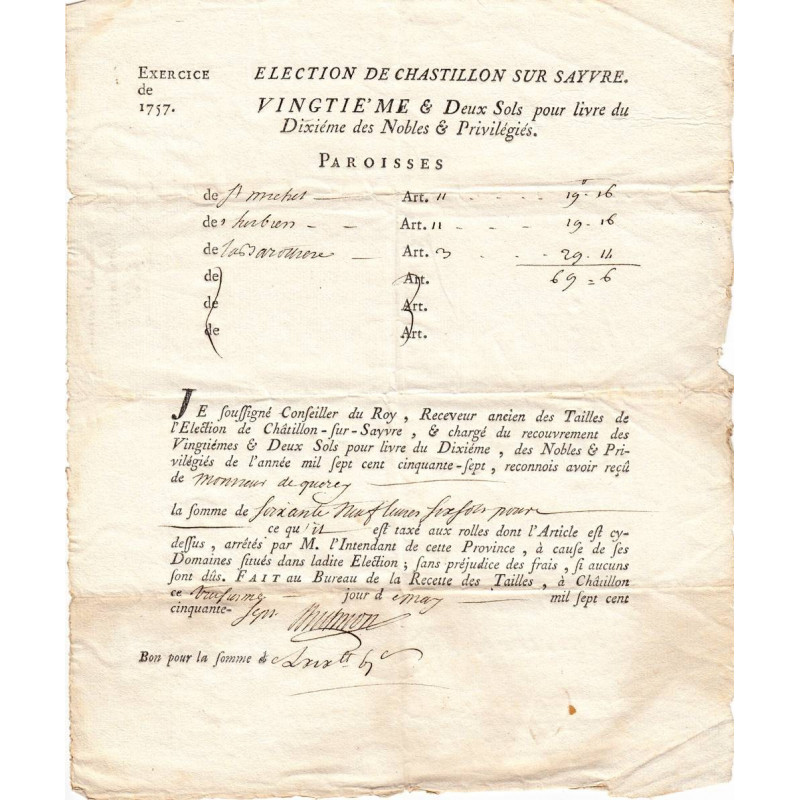 EXERCICE
de
1757.
ELECTION DE CHASTILLON SUR SAYVRE.
VINGTIE'ME & Deux Sols pour livre du
Dixiéme des Nobles & Privilégiés.
PAROISSES
de St michel Art. 11 19 . 16
des herbiers Art. 11 19 . 16
de Art. 3 29 . 14
de Art. 69 = 6
de Art.
de Art.
JE souſſigné Conſeiller du Roy, Receveur ancien des Tailles de
l'Election de Châtillon-ſur-Sayvre, & chargé du recouvrement des
Vingtiémes & Deux Sols pour livre du Dixiéme, des Nobles & Pri-
vilégiés de l'année mil ſept cent cinquante-ſept, reconnois avoir reçû
de Monsieur de
la ſomme de soixante neuf livres six sols pour
ce qu'il eſt taxé aux rolles dont l'Article eſt cy-
deſſus, arrêtés par M. l'Intendant de cette Province, à cauſe de ſes
Domaines ſitués dans ladite Election; ſans préjudice des frais, ſi aucuns
ſont dûs. FAIT au Bureau de la Recette des Tailles, à Châtillon
ce jour de may mil ſept cent
cinquante- sept
Bon pour la ſomme de